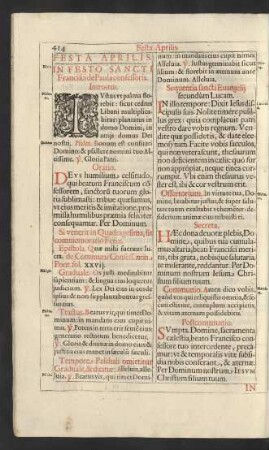 414
Festa Aprilis
FESTA APRILIS.
IN FESTO SANCTI
Francisci de Paula confessoris.
Introitus.
IUstus ut palma flo-
rebit: sicut cedrus
Libani multiplica-
bitur: plantatus in
domo Domini, in
atriis domus Dei
nostri. Psalm. Bonum est confiteri
Domino: & psallere nomini tuo Al-
tissime. ℣. Gloria Patri.
Oratio.
DEus humilium celsitudo,
qui beatum Franciscum cõ-
fessorem, sanctorũ tuorum glo-
ria sublimasti: tribue quæsumus,
ut eius meritis & imitatione, pro-
missa humilibus præmia feliciter
consequamur. Per Dominum.
Si venerit in Quadragesima, fit
commemoratio Feriæ.
Epistola.
xxvij.
Graduale. Os justi meditabitur
sapientiam: & lingua eius loquetur
judicium. ℣. Lex Dei eius in corde
ipsius: & non supplantabuntur gres-
sus eius.
Tractus. Beatus vir, qui timet Do-
minum: in mandatis eius cupit ni-
mis. ℣. Potens in terra erit semen eius:
generatio rectorum benedicetur.
℣. Gloria & divitiæ in domo eius: &
justitia eius manet in sæculum sæculi.
Tempore Paschali omittitur
Graduale, & dicitur. Alleluia, alle-
luia. ℣. Beatus vir, qui timet Domi-
num: in mandatis eius cupit nimis.
Alleluia. ℣. Justus germinabit sicut
lilium: & florebit in æternum ante
Dominum. Alleluia.
Sequentia sancti Evangelij
secundùm Lucam.
IN illo tempore: Dixit Iesus dis-
cipulis suis: Nolite timere pusil-
lus grex: quia complacuit patri
vestro dare vobis regnum. Vendi-
te quæ possidetis, & date elee-
mosynam. Facite vobis sacculos,
qui non veterascunt, thesaurum
non deficientem in cælis: quò fur
non appropiat, neque tinea cor-
rumpit. Ubi enim thesaurus ve-
ster est, ibi & cor vestrum erit.
Offertorium. In virtute tua, Do-
mine, lætabitur justus, & super salu-
tare tuum exultabit vehementer: de-
siderium animæ eius tribuisti ei.
Secreta.
HÆc dona devotæ plebis, Do-
mine, quibus tua cumula-
mus altaria, beati Francisci meri-
tis, tibi grata, nobisque salutaria
te miserante, reddantur. Per Do-
minum nostrum Iesum Chri-
stum filium tuum.
Communio. Amen dico vobis:
quòd vos qui reliquistis omnia, & se-
cuti estis me, centuplum accipietis,
& vitam æternam possidebitis.
Postcommunio.
SUmpta Domine, sacramenta
cælestia, beato Francisco con-
fessore tuo intercedente, præca-
mur: ut & temporalis vitæ subsi-
dia nobis conferant, & æternæ.
Per Dominum nostrum Iesum
Christum filium tuum.
IN